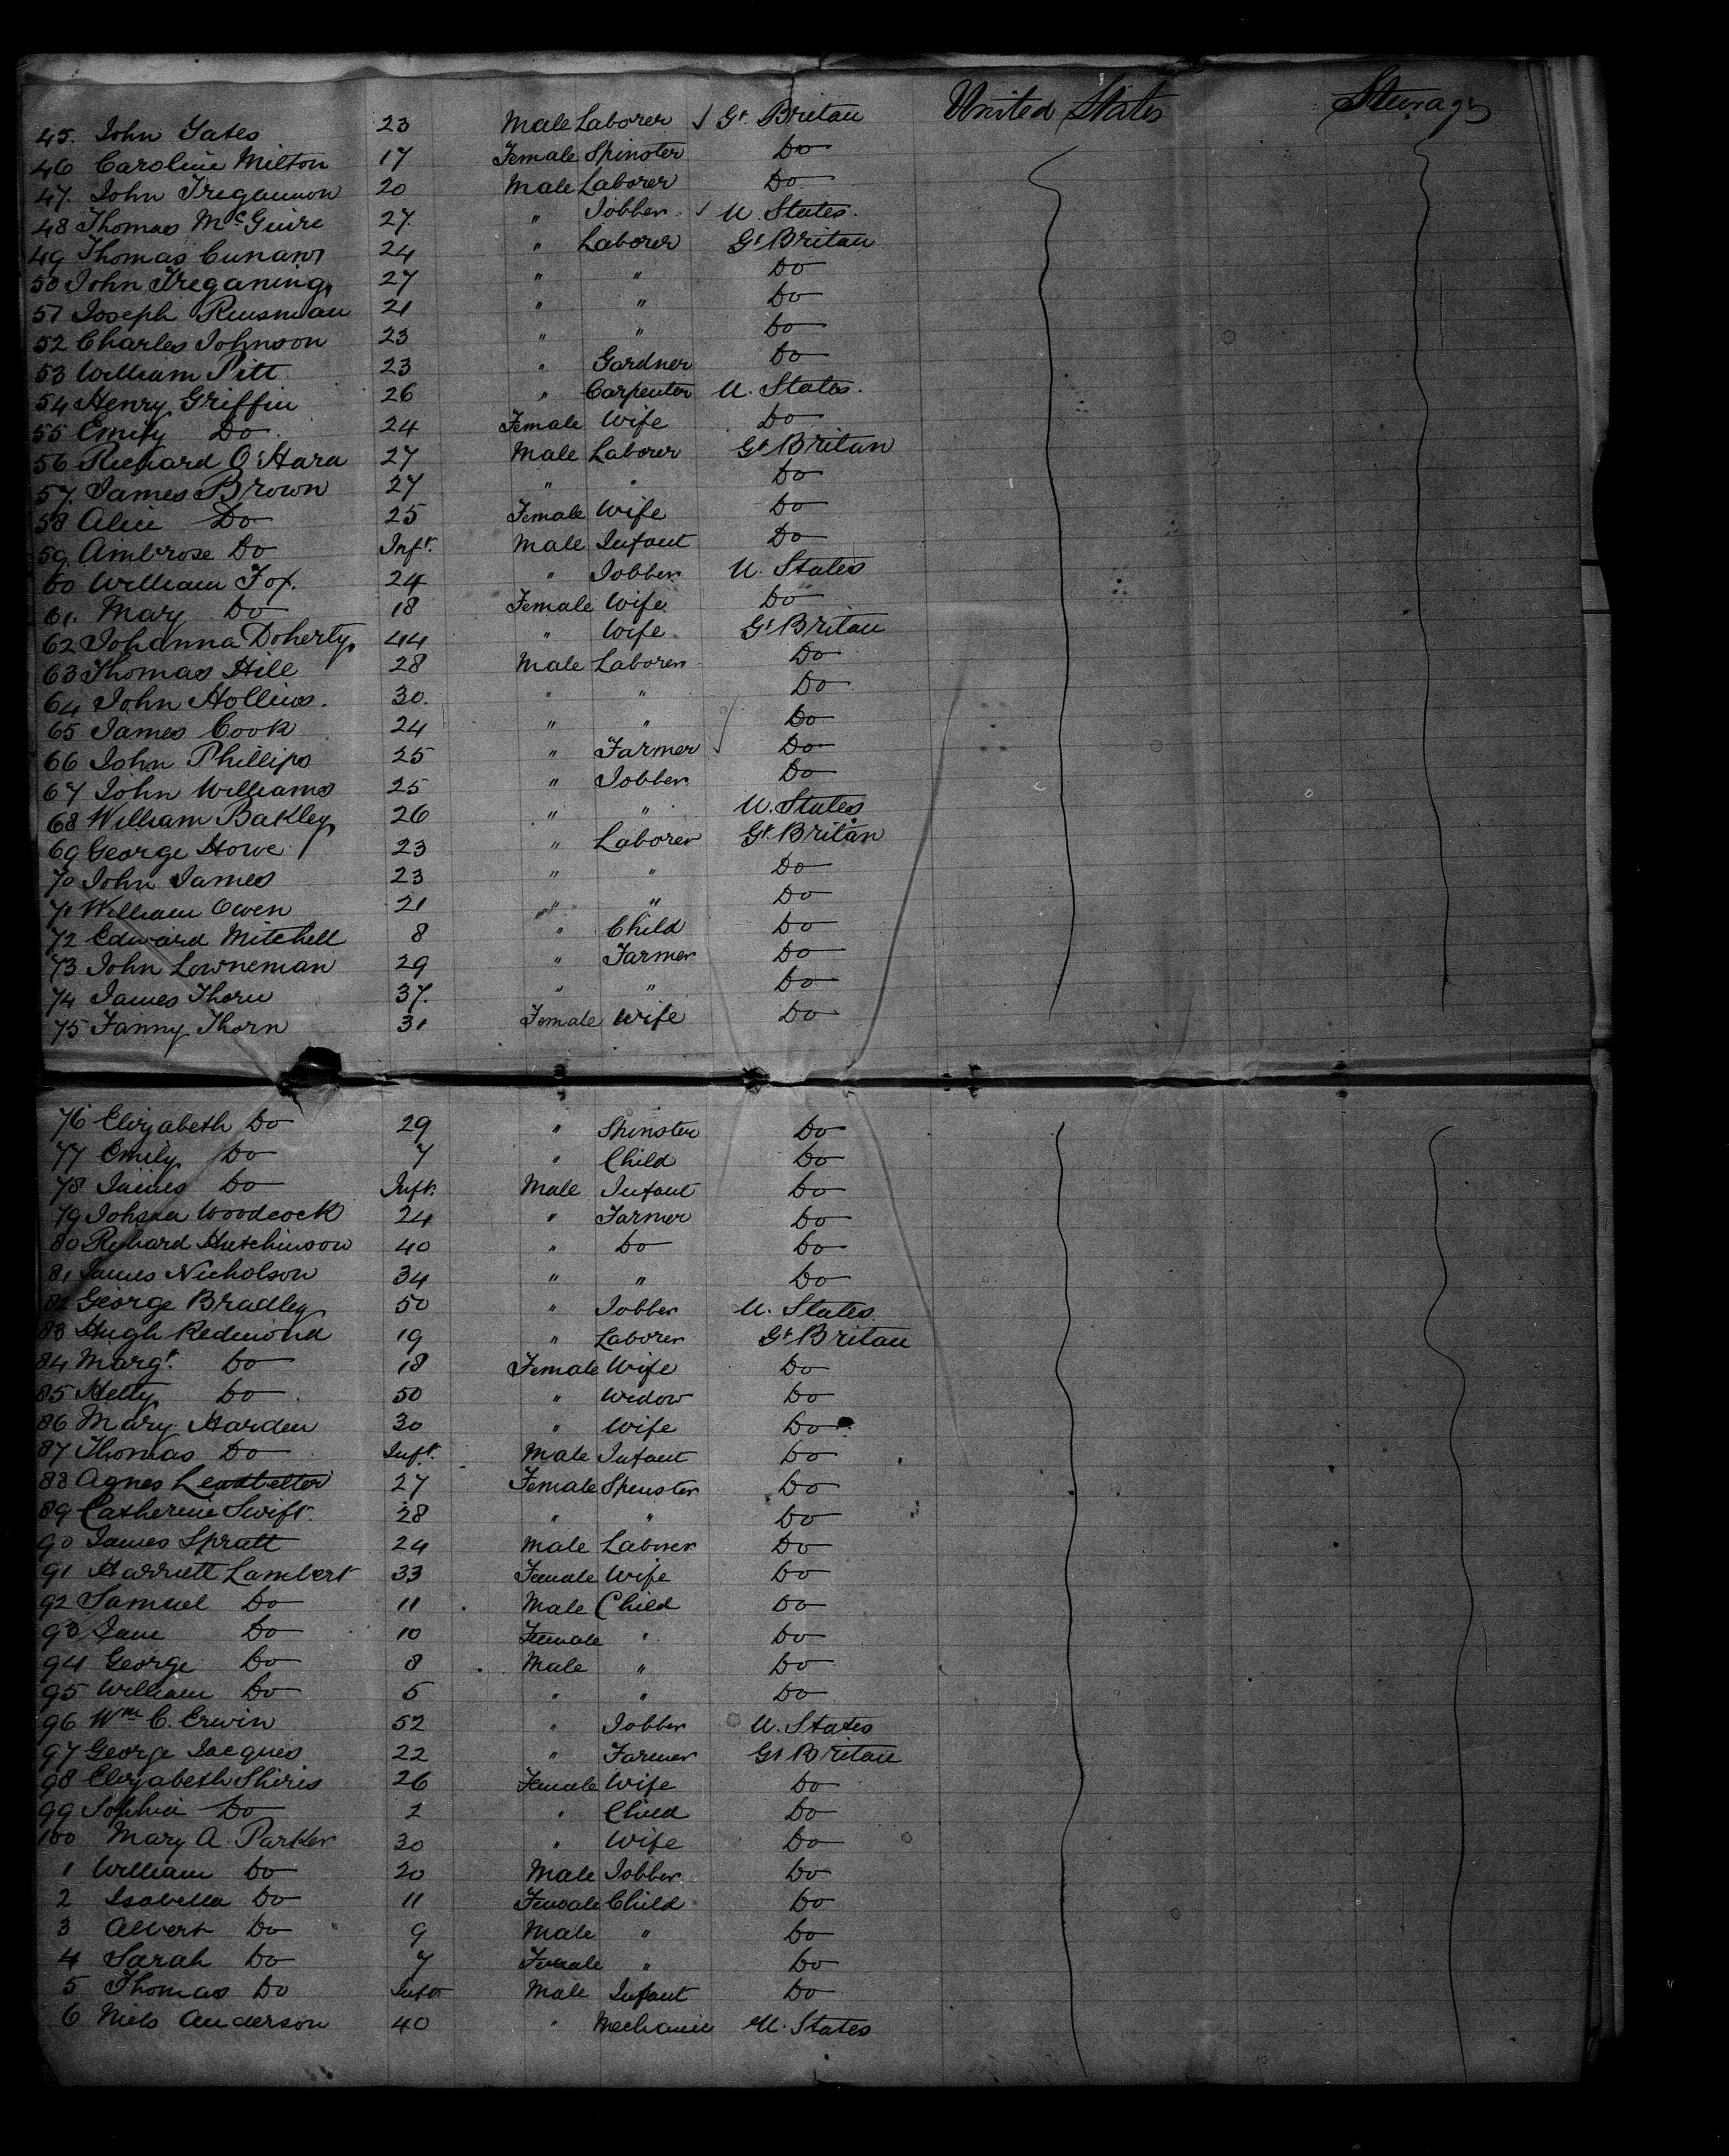 45. John Yates 23 Male Laborer ✓ Gt. Britan United States Sterage
46 Caroline Milton 17 Female Spinster Do
47. John Tregannon 20 Male Laborer Do
48 Thomas McGuire 27. " Jobber. ✓ U. States.
49 Thomas Cunann 24 " Laborer Gt Britan
50 John Treganing 27 " " Do
51 Joseph 21 " " Do
52 Charles Johnson 23 " " Do
53 William Pitt 23 " Gardner Do
54 Henry Griffin 26 " Carpenter U. States.
55 Emily Do. 24 Female Wife Do
56 Richard O'Hara 27 Male Laborer Gt Britan
57. James Brown 27 " " Do
58 Alice Do 25 Female Wife Do
59 Ambrose Do Inft. Male Infant Do
60 William Fox. 24 " Jobber U. States
61. Mary Do 18 Female Wife Do
62 Johanna Doherty 44 " Wife Gt Britan
63 Thomas Hill 28 Male Laborer Do
64 John Hollins. 30. " " Do
65 James Cook 24 " " Do
66 John Phillips 25 " Farmer ✓ Do
67 John Williams 25 " Jobber Do
68 William Bakley 26 " " U. States
69 George Howe 23 " Laborer Gt. Britan
70 John James 23 " " Do
71 William Owen 21 " " Do
72 Edward Mitchell 8 " Child Do
73 John Lowneman 29 " Farmer Do
74 James Thorn 37. " " Do
75 Fanny Thorn 31 Female Wife Do
76 Elizabeth Do 29 " Spinster Do
77 Emily Do 7 " Child Do
78 James Do Inft. Male Infant Do
79 Woodcock 24 " Farmer Do
80 Richard Hutchinson 40 " Do Do
81 James Nicholson 34 " " Do
82 George Bradley 50 " Jobber U. States
83 Hugh Redmond 19 " Laborer Gt Britan
84 Margt. Do 18 Female Wife Do
85 Hetty Do 50 " Widow Do
86 Mary Harden 30 " Wife Do
87 Thomas Do Inft. Male Infant Do
88 Agnes Leadbetter 27 Female Spinster Do
89 Catherine Swift 28 " " Do
90 James Spratt 24 Male Laborer Do
91 Harriett Lambert 33 Female Wife Do
92 Samuel Do 11 Male Child Do
93 Jane Do 10 Female " Do
94 George Do 8 Male " Do
95 William Do 5 " " Do
96 Wm C. Erwin 52 " Jobber U. States
97 George Jacques 22 " Farmer Gt Britan
98 Elizabeth Shiris 26 Female Wife Do
99 Sophia Do 2 " Child Do
100 Mary A. Parker 30 " Wife Do
1 William Do 20 Male Jobber Do
2 Isabella Do 11 Female Child Do
3 Albert Do 9 Male " Do
4 Sarah Do 7 Female " Do
5 Thomas Do Inft Male Infant Do
6 Niels Anderson 40 " Mechanic U. States